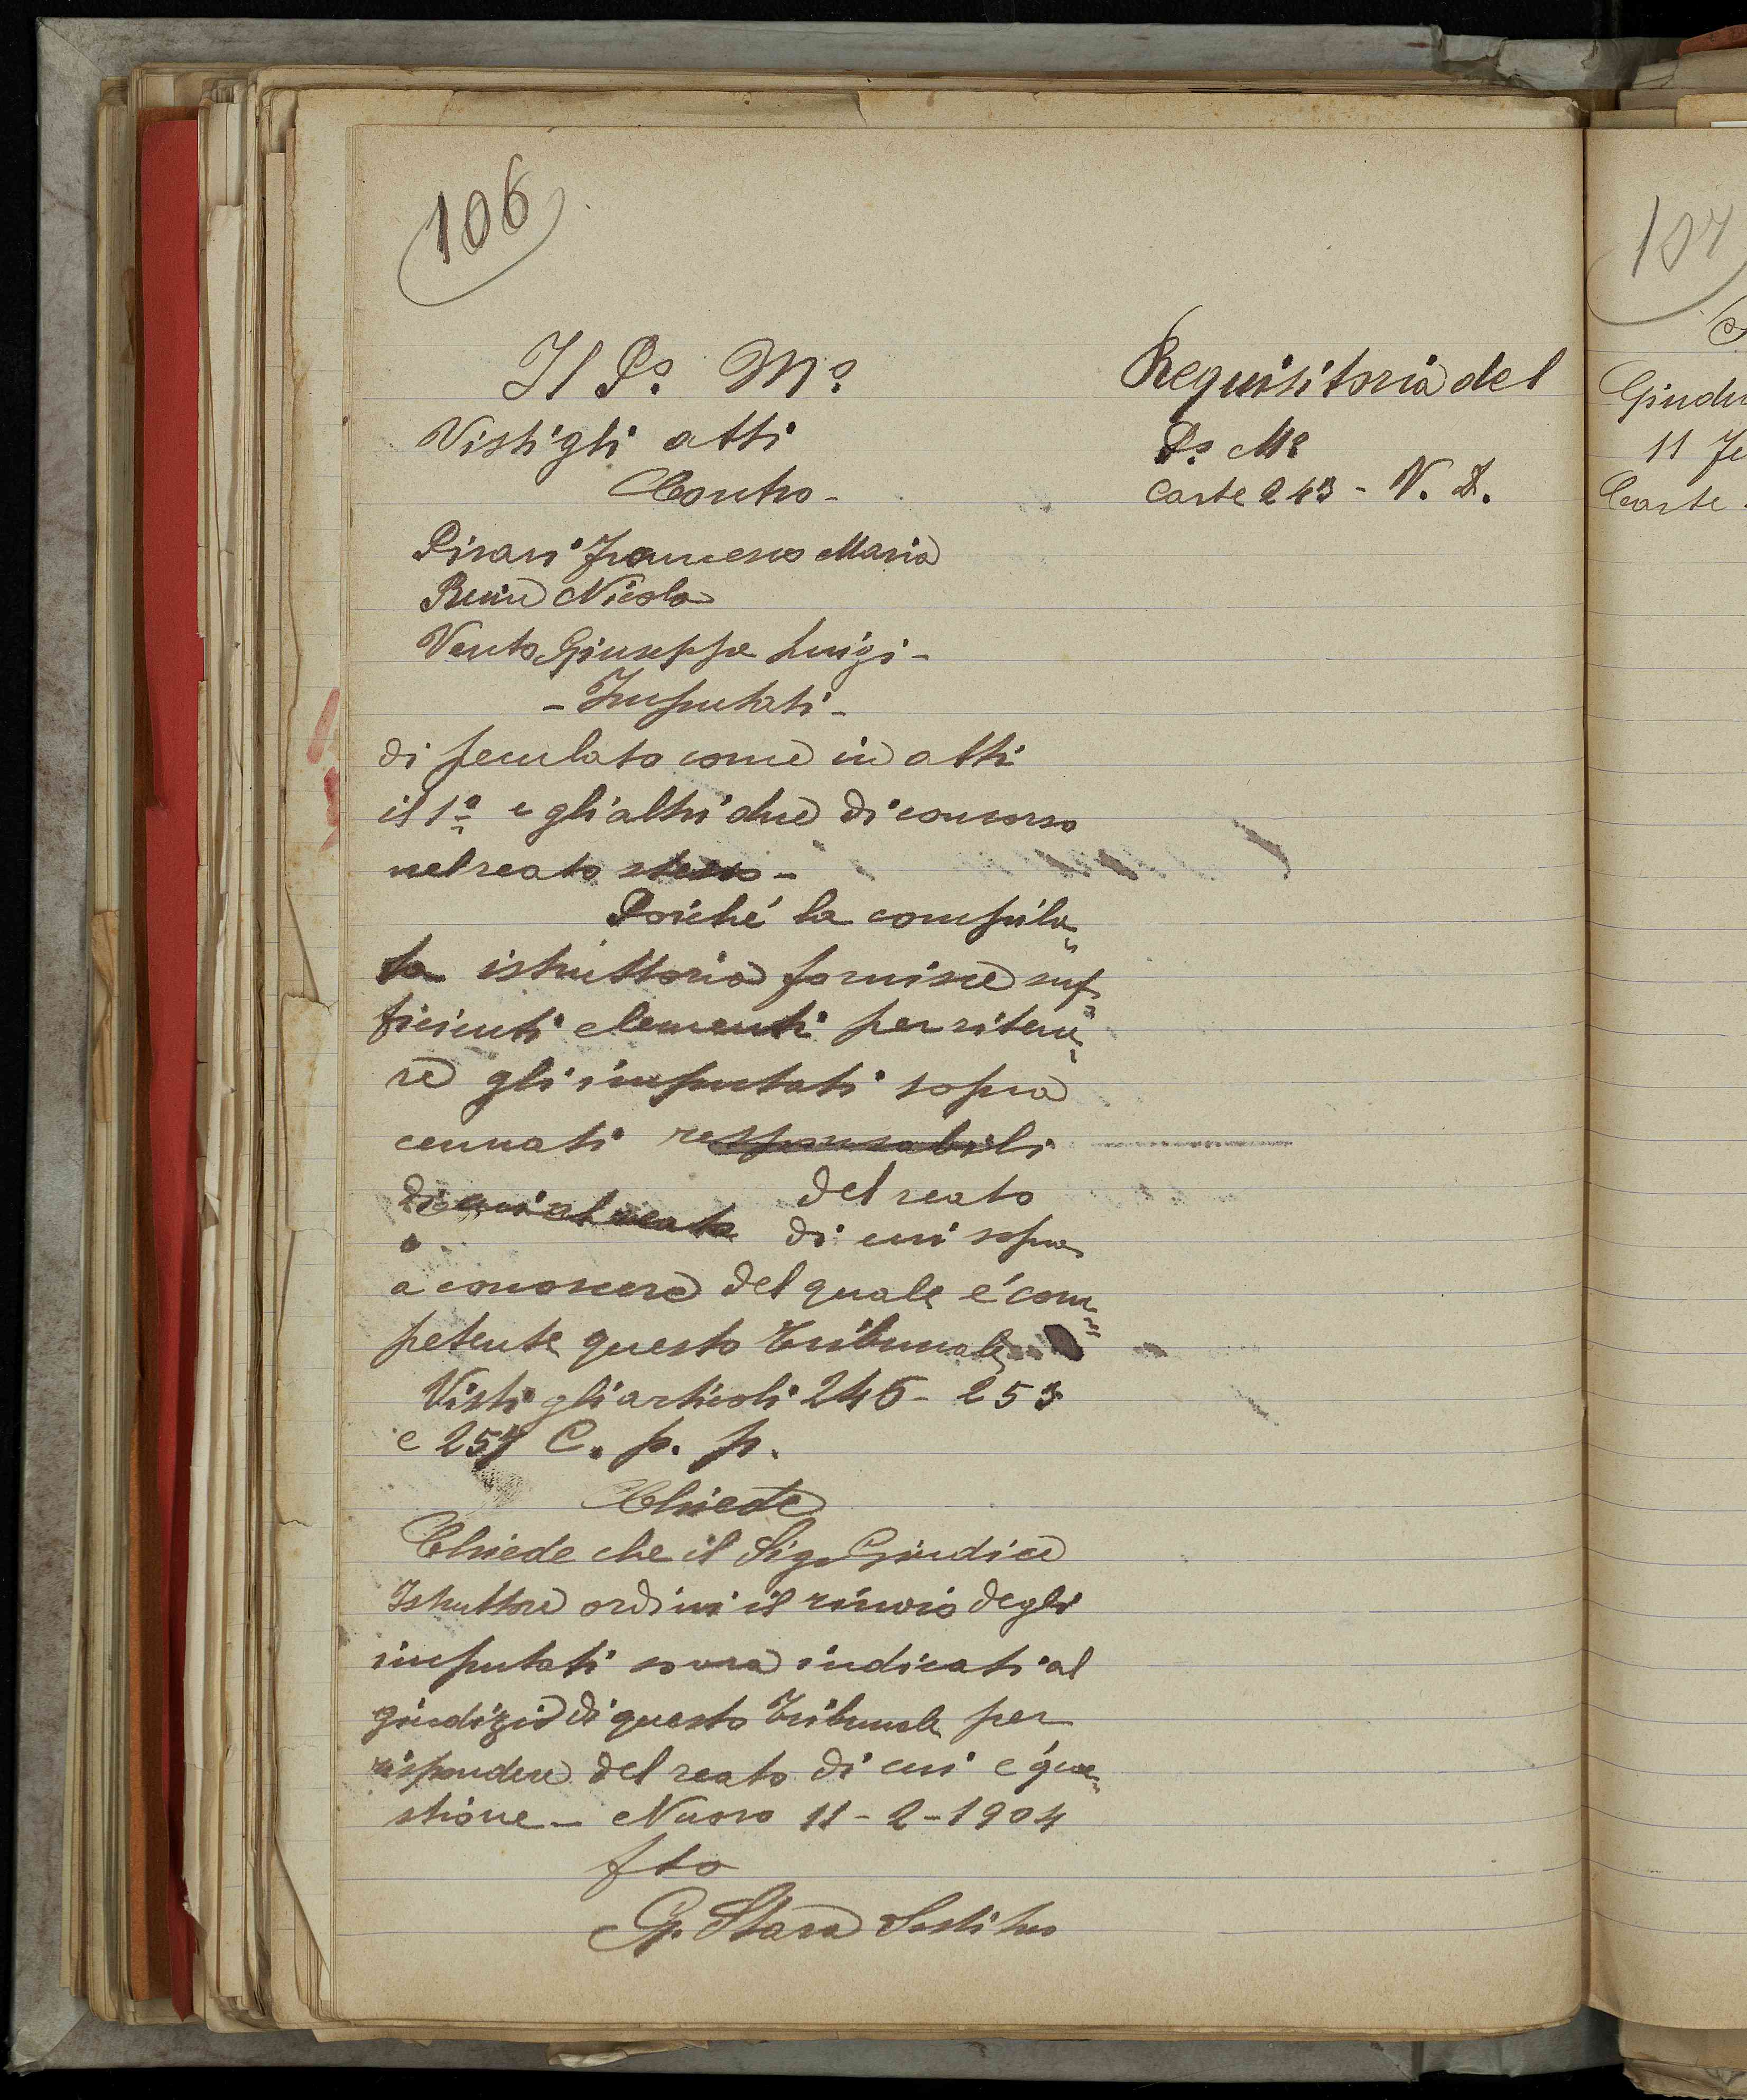 106
Il Pº Mº
Visti gli atti
Contro -
Pirari Francesco Maria
Nicola
Vento Giuseppe Luigi -
- Imputati -
di peculato come in atti
il 1º e gli altri due di concorso
nel reato stesso -
Poiché la compila„
ta istruttoria fornisce suf„
ficienti elementi per ritene„
re gli imputati sopra
cennati responsabili
del reato
di cui al reato
di cui sopra
a conoscere del quale é com„
petente questo Tribunale
Visti gli articoli 246 - 253
e 257 C. p. p.
Chiede
Chiede che il Sig. Giudice
Istruttore ordini il rinvio degli
imputati sovra indicati al
giudizio di questo Tribunale per
rispondere del reato di cui é que„
stione - Nuoro 11 - 2 - 1904
fto
G. Stara Sostituto
Requisitoria del
Pº Mº
Carte 243 - V. I.
107
Giudi
11 Fe
Carte